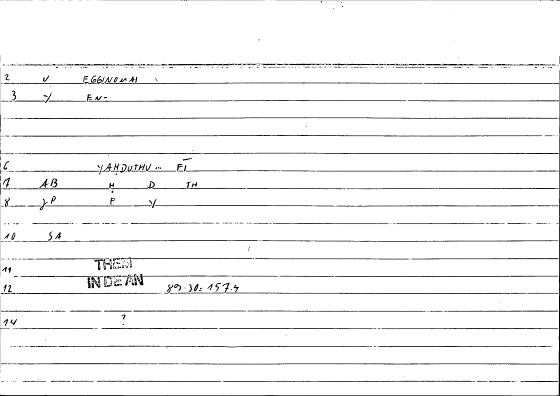 2 V EGGINOMAI
3 Y EN-
6 YAḤDUTHU... FĪ
7 AB Ḥ D TH
8 P F Y
10 SA
11 THEM
12 IN DE AN 89.30=157.4
14 ?